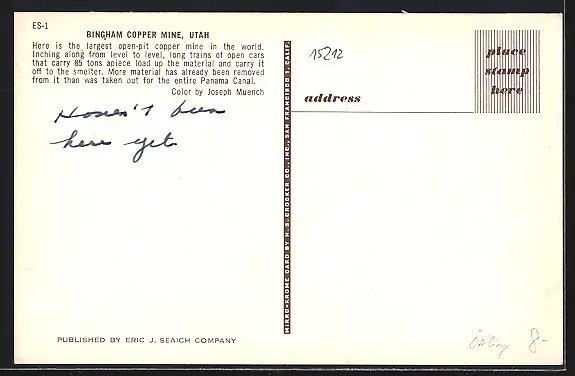 ES-1
BINGHAM COPPER MINE, UTAH
Here is the largest open-pit copper mine in the world.
Inching along from level to level, long trains of open cars
that carry 85 tons apiece load up the material and carry it
off to the smelter. More material has already been removed
from it than was taken out for the entire Panama Canal.
Color by Joseph Muench
Haven't been
here yet
PUBLISHED BY ERIC J. SEAICH COMPANY
MIRRO-KROME CARD BY H. S. CROCKER CO., INC., SAN FRANCISCO 1, CALIF.
15212
address
place
stamp
here
8-